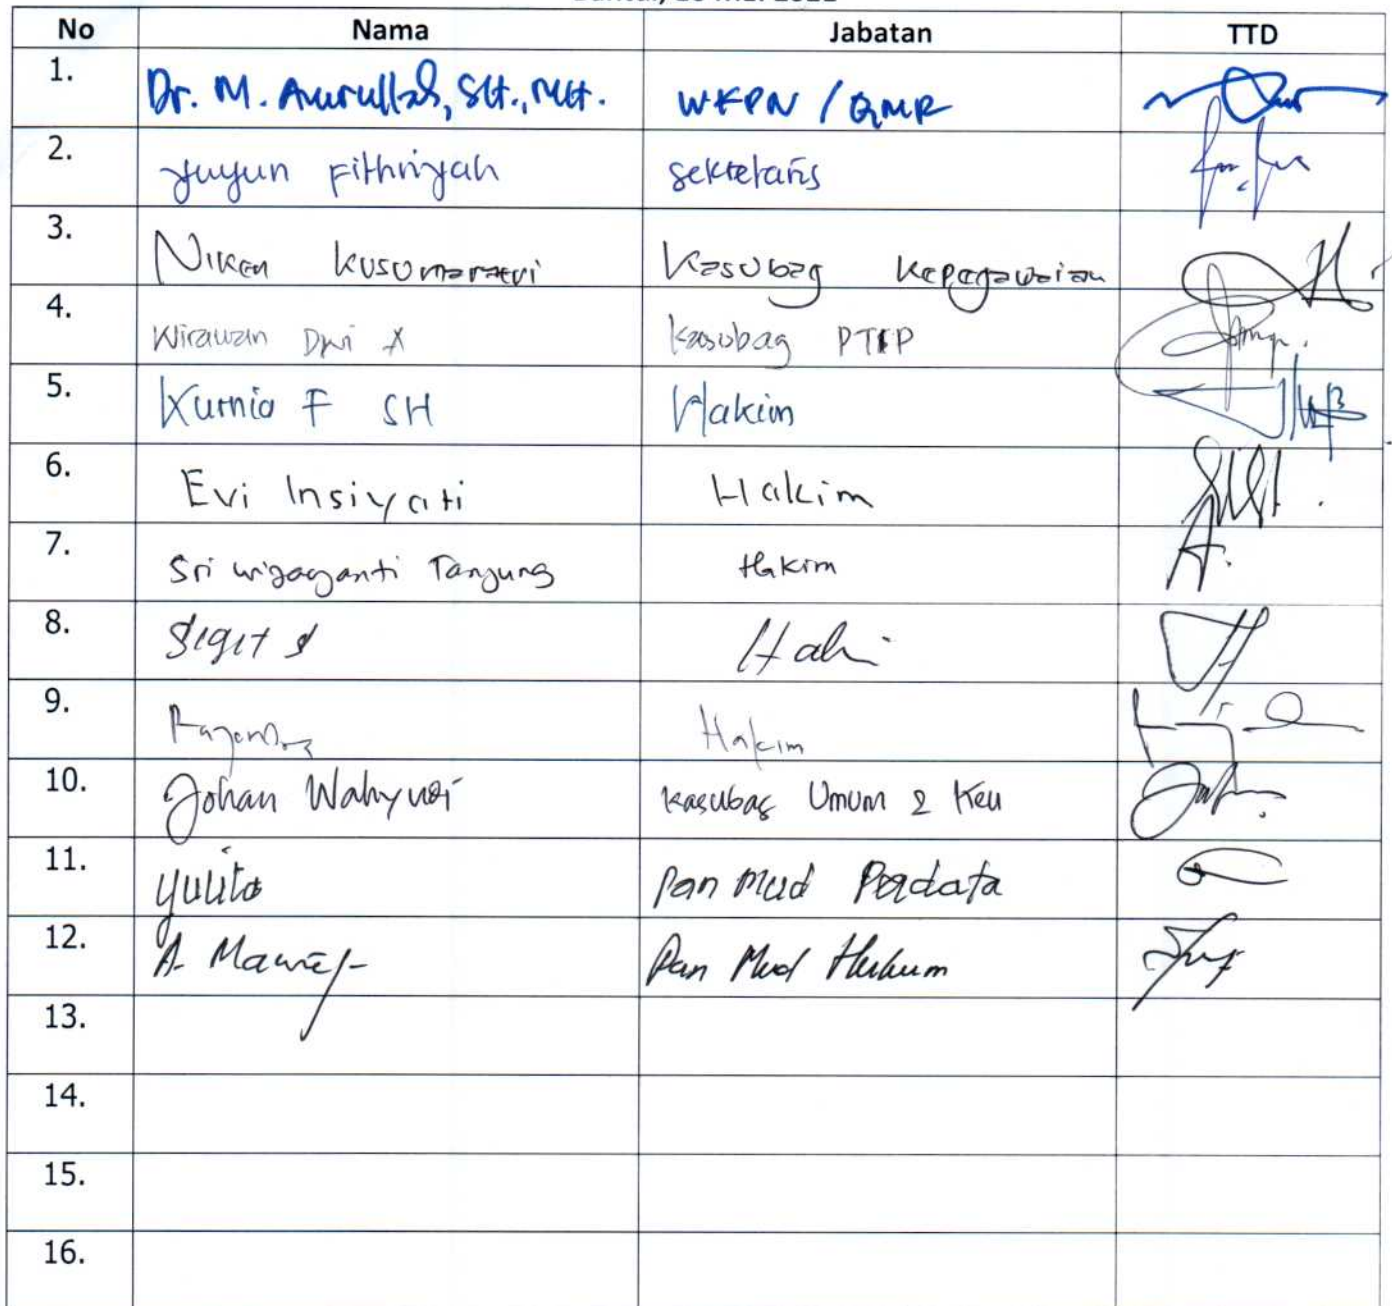 No Nama Jabatan TTD
1. Dr. M. Amrullah, SH., MH. WKPN / QMR
2. Yuyun Fithriyah Sekretaris
3. Niken Kusumarani Kasubag Kepegawaian
4. Wirawan Dwi A Kasubag PTIP
5. Kurnia F SH Hakim
6. Evi Insiyati Hakim
7. Sri Wijayanti Tanjung Hakim
8. Sigit S Hakim
9. Hakim
10. Johan Wahyudi Kasubag Umum & Keu
11. Yulita Pan Mud Perdata
12. A. Pan Mud Hukum
13.
14.
15.
16.